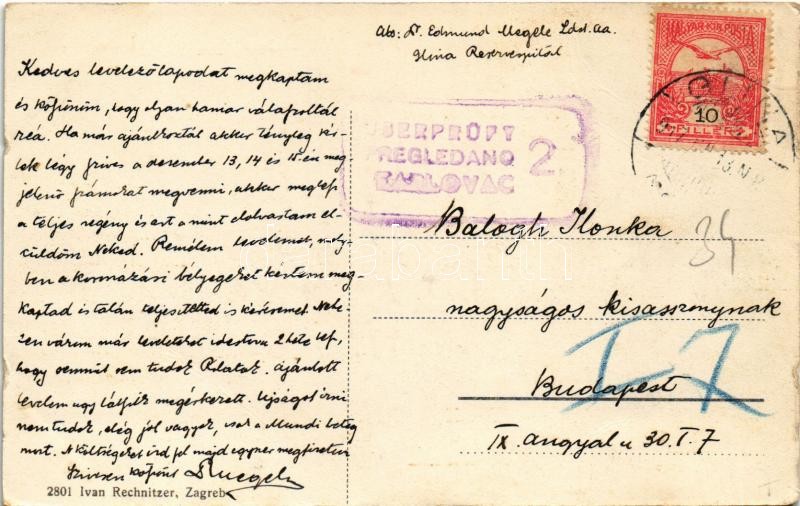 Abs: Dr. Edmund Megele Ldst.
Glina Reservespital
Kedves levelezőlapodat megkaptam
és köszönöm, hogy olyan hamar válaszoltál
reá. Ha már ajánlkoztál akkor tényleg kér-
lek légy szives a december 13, 14 és 15-én meg
jelenő számokat megvenni, akkor meglesz
a teljes regény és ezt a mint elolvastam el-
küldöm Neked. Remélem levelemet, mely-
ben a kormázási bélyegeket kértem meg-
kaptad és talán teljesitetted is kérésemet. Nehe-
zen várom már leveleteket idestova 2 hete,
hogy semmit sem tudok Rólatok. Ajánlott
levelem ugy látszik megérkezett. Ujságot irni
nem tudok, elég jól vagyok, csak a Mundi beteg
most. A költségeket ird fel majd egyszer megfizetem
Szivesen köszönt
2801 Ivan Rechnitzer, Zagreb
MAGYAR KIR. POSTA
10
FILLÉR
GLINA
ÜBERPRÜFT
PREGLEDANO
KARLOVAC
2
Balogh Ilonka
34
nagyságos kisasszonynak
I-7
Budapest
IX. angyal u 30. I. 7
darabanth